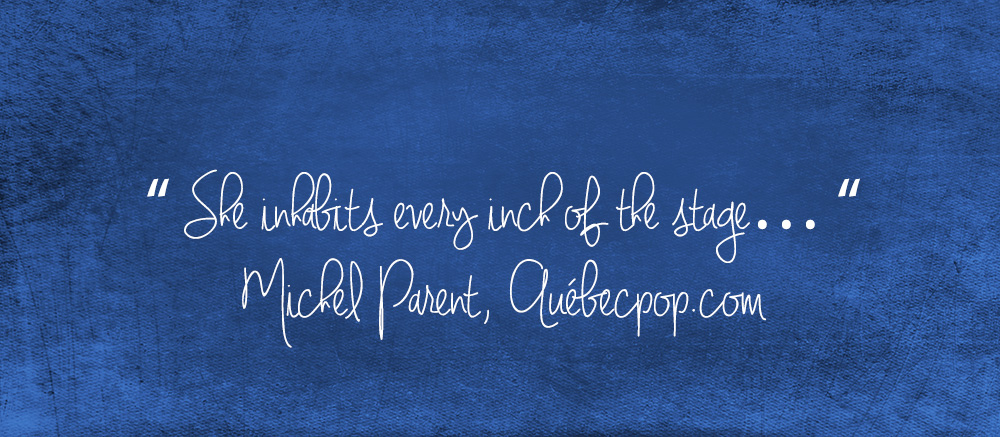 “ She inhabits every inch of the stage... “
Michel Parent, Québecpop.com